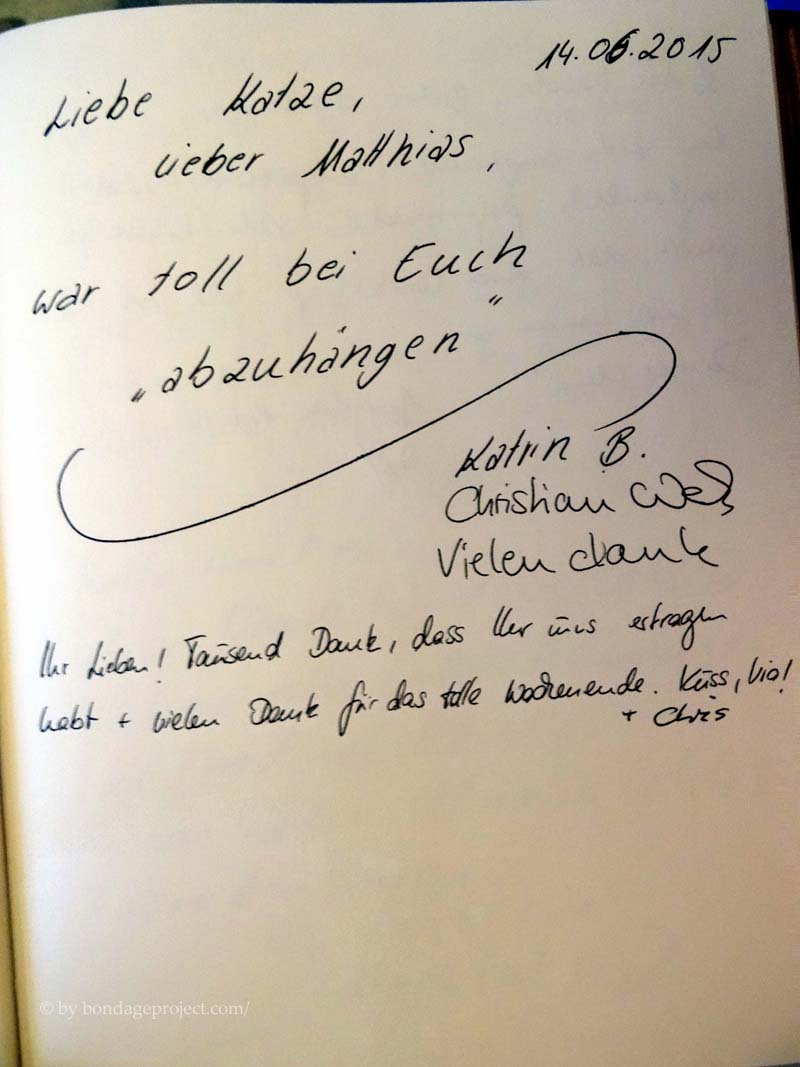 14.06.2015
Liebe Katze,
lieber Matthias,
war toll bei Euch
„abzuhängen"
Katrin B.
Christian
Vielen dank
Ihr Lieben! Tausend Dank, dass Ihr uns ertragen
habt + vielen Dank für das tolle Wochenende. Kuss, Via!
+ Chris
© by bondageproject.com/